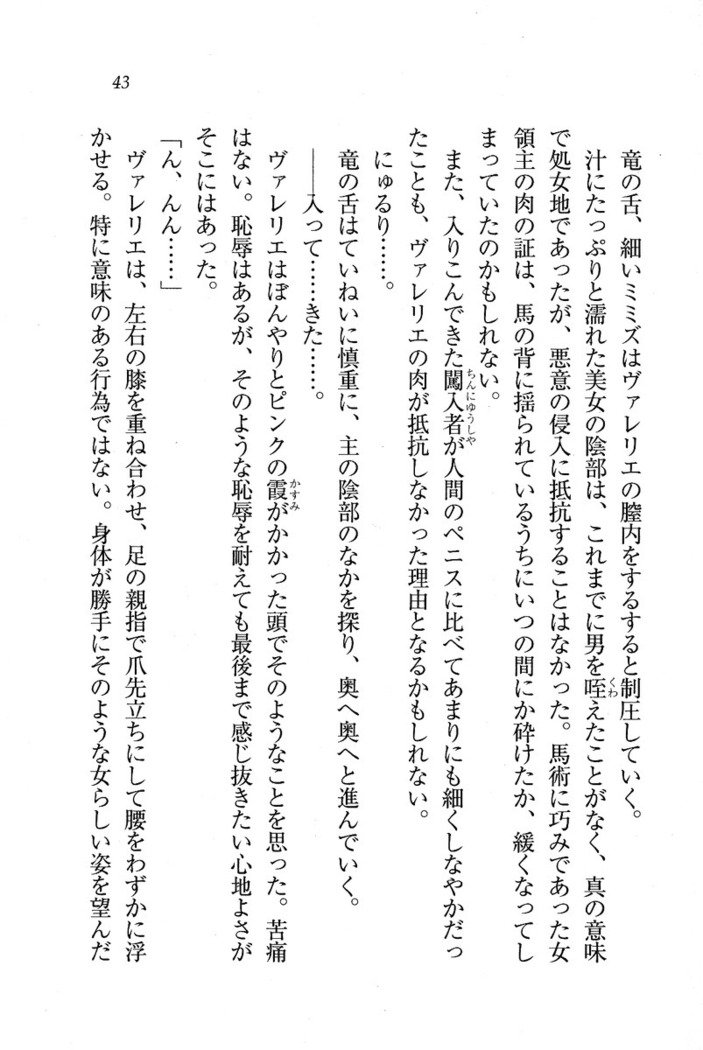 43
竜の舌、細いミミズはヴァレリエの膣内をするすると制圧していく。
汁にたっぷりと濡れた美女の陰部は、これまでに男を咥えたことがなく、真の意味
で処女地であったが、悪意の侵入に抵抗することはなかった。馬術に巧みであった女
領主の肉の証は、馬の背に揺られているうちにいつの間にか砕けたか、緩くなってし
まっていたのかもしれない。
また、入りこんできた闖入者が人間のペニスに比べてあまりにも細くしなやかだっ
たことも、ヴァレリエの肉が抵抗しなかった理由となるかもしれない。
にゅるり……。
竜の舌はていねいに慎重に、主の陰部のなかを探り、奥へ奥へと進んでいく。
――入って……きた……。
ヴァレリエはぼんやりとピンクの霞がかかった頭でそのようなことを思った。苦痛
はない。恥辱はあるが、そのような恥辱を耐えても最後まで感じ抜きたい心地よさが
そこにはあった。
「ん、んん……」
ヴァレリエは、左右の膝を重ね合わせ、足の親指で爪先立ちにして腰をわずかに浮
かせる。特に意味のある行為ではない。身体が勝手にそのような女らしい姿を望んだ